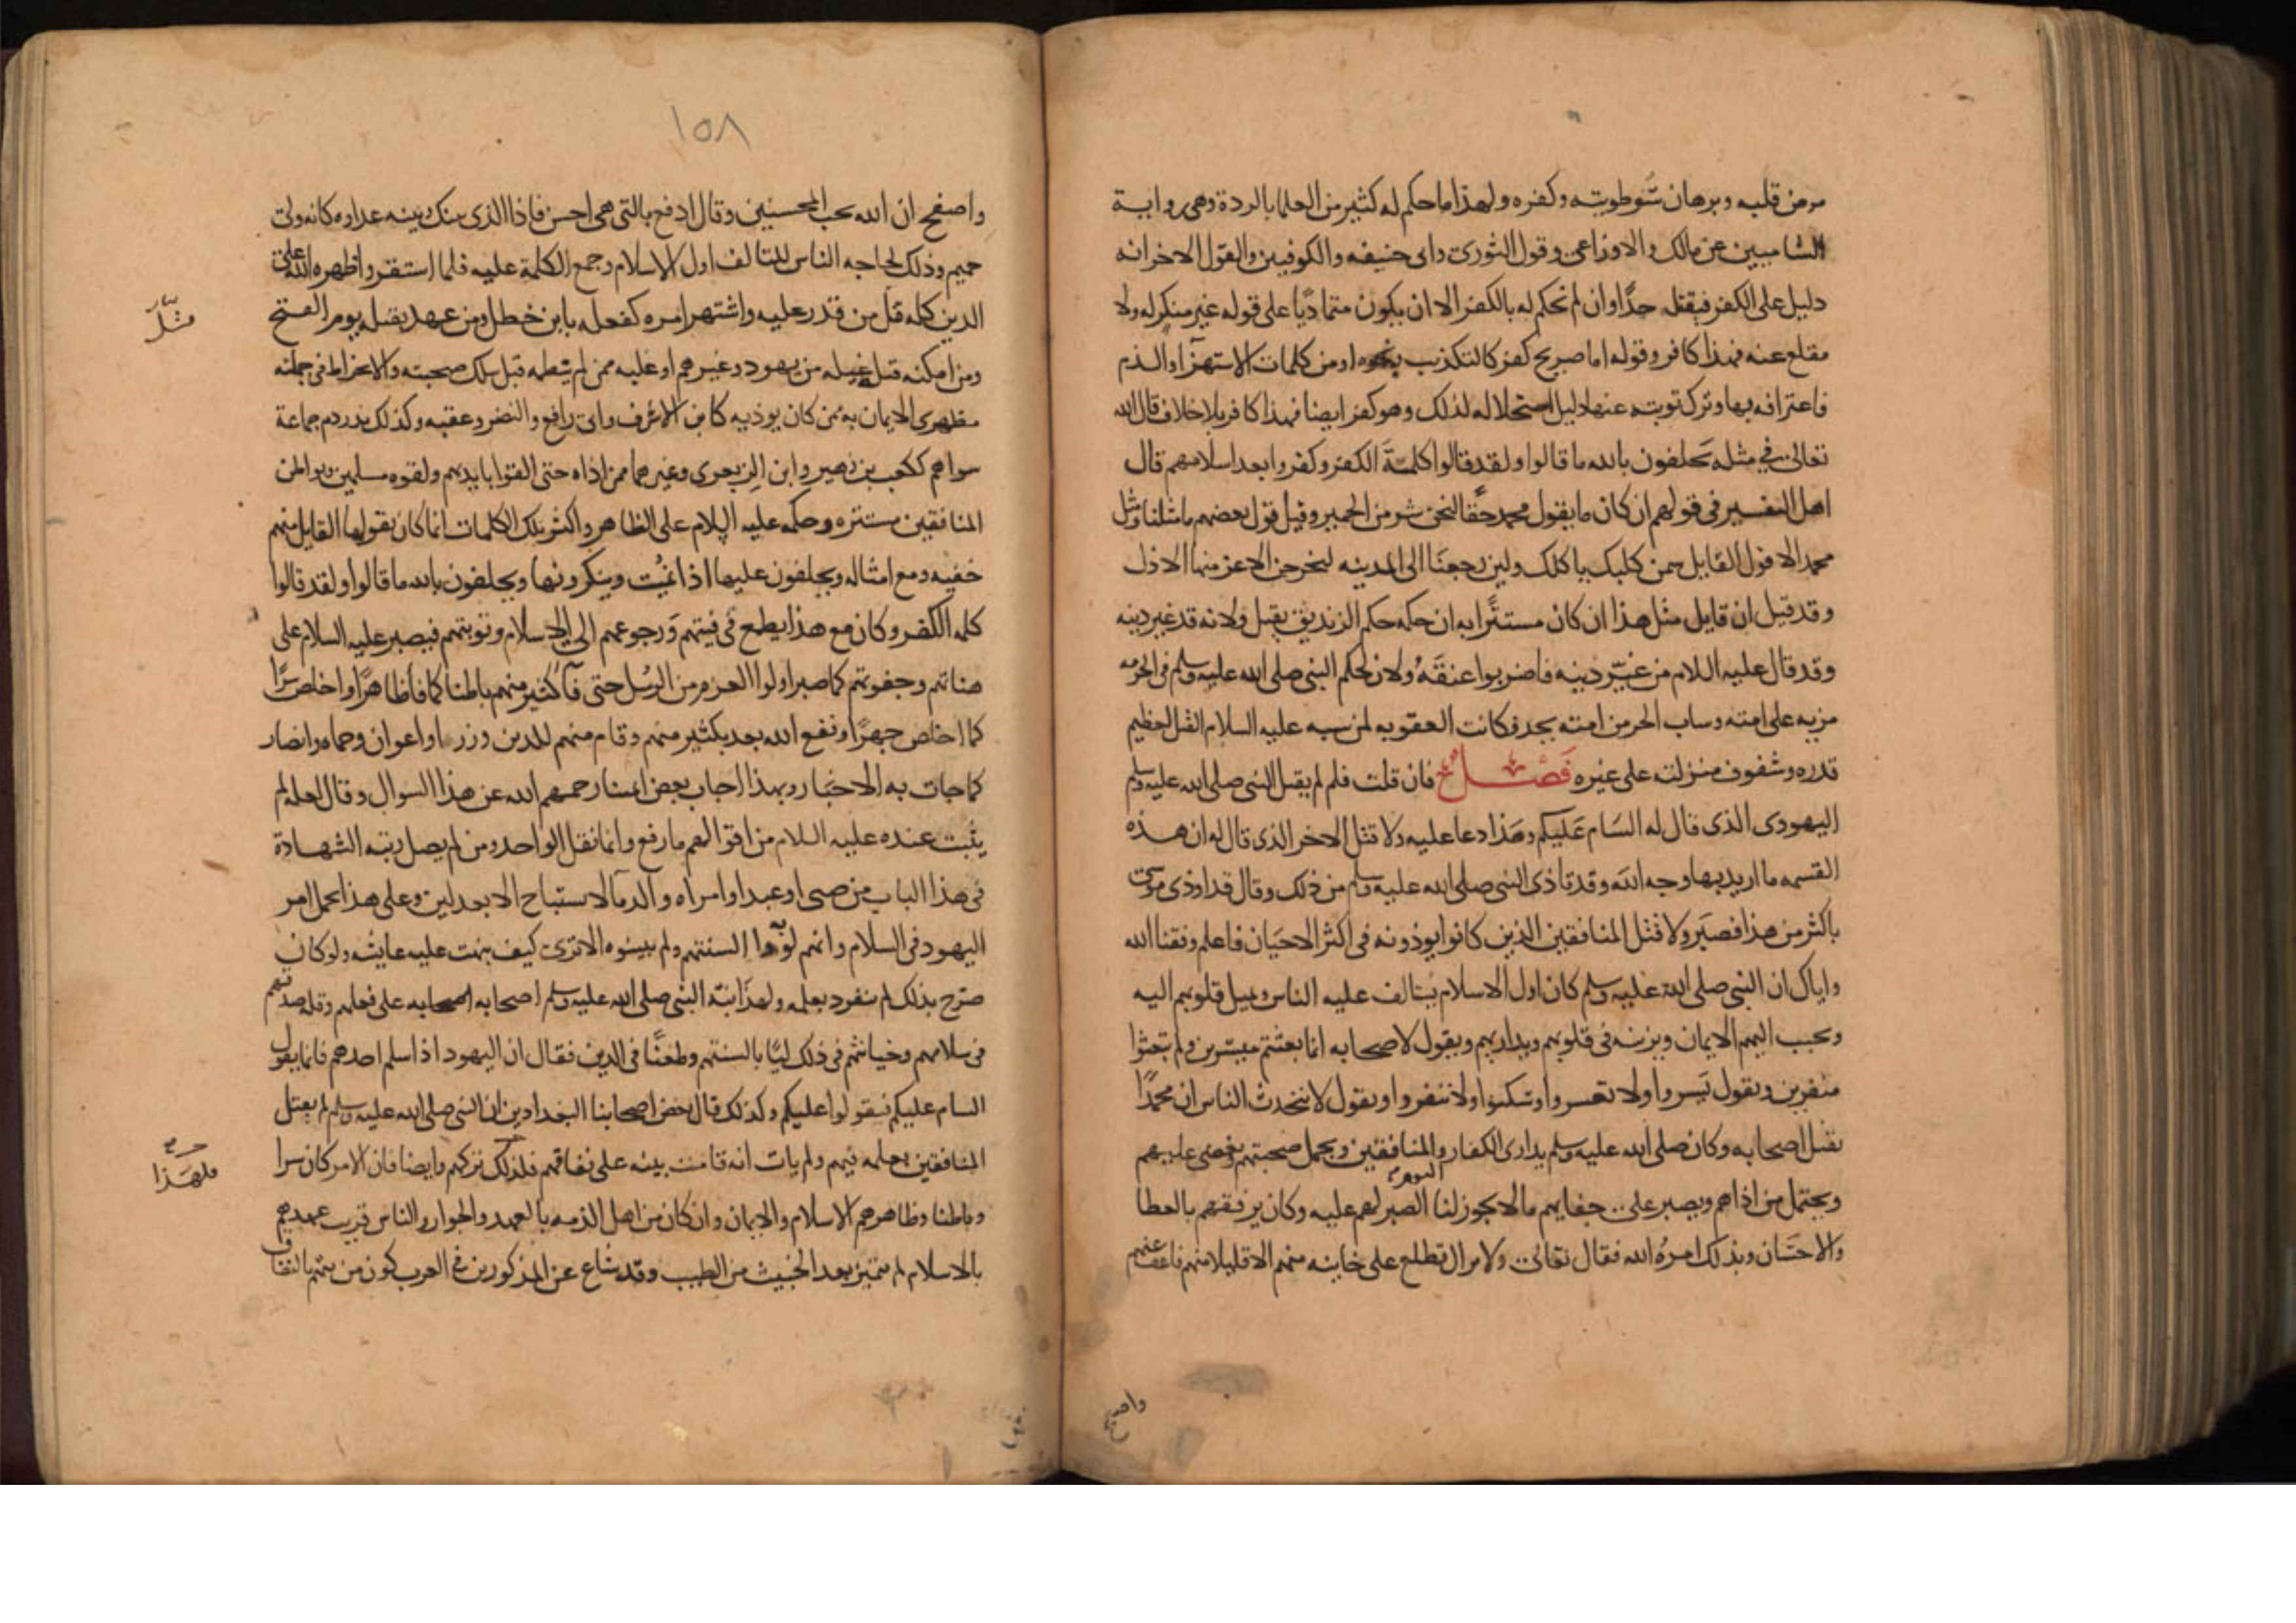 مرض قلبه وبرهان سوطويته وكفره ولهذا ما حكم له كثير من العلما بالردة وهى رواية
الشاميين عن مالك والاوزاعى وقول الثورى وابى حنيفه والكوفيين والقول الاخر انه
دليل على الكفر فيقتل حدًا وان لم نحكم له بالكفر الا ان يكون متماديًا على قوله غير منكر له ولا
مقلع عنه فهذا كافر وقوله اما صريح كفر كالتكذيب ونحوه او من كلمات الاستهزآ والذم
فاعترافه بها وترك توبته عنها دليل استحلاله لذلك وهو كفر ايضا فهذا كافر بلا خلاف قال الله
تعالى فى مثله يحلفون بالله ما قالوا ولقد قالوا كلمة الكفر وكفروا بعد اسلامهم قال
اهل التفسير فى قولهم ان كان ما يقول محمد حقًا لنحن شر من الحمير وقيل قول بعضهم ما مثلنا ومثل
محمد الا قول القايل سمن كلبك ياكلك ولين رجعنا الى المدينه ليخرجن الاعز منها الاذل
وقد قيل ان قايل مثل هذا ان كان مستترًا به ان حكمه حكم الزنديق يقتل ولانه قد غير دينه
وقد قال عليه السلام من غيّر دينه فاضربوا عنقه ولان لحكم النبى صلى الله عليه وسلم فى الحرمه
مزيه على امته وساب الحر من امته يحد فكانت العقوبه لمن سبه عليه السلام القتل لعظيم
قدره وشفوف منزلته على غيره فصل فان قلت فلم لم يقتل النبى صلى الله عليه وسلم
اليهودى الذى قال له السام عليكم وهذا دعا عليه ولا قتل الاخر الذى قال له ان هذه
القسمه ما اريد بها وجه الله وقد تاذى النبى صلى الله عليه وسلم من ذلك وقال قد اوذى موسى
باكثر من هذا فصبر ولا قتل المنافقين الذين كانوا يوذونه فى اكثر الاحيان فاعلم وفقنا الله
واياك ان النبى صلى الله عليه وسلم كان اول الاسلام يتالف عليه الناس ويميل قلوبهم اليه
ويحبب اليهم الايمان ويزينه فى قلوبهم ويداريهم ويقول لاصحابه انما بعثتم ميسرين ولم تبعثوا
منفرين ويقول يسروا ولا تعسروا وسكنوا ولا تنفروا ويقول لا يتحدث الناس ان محمدًا
يقتل اصحابه وكان صلى الله عليه وسلم يدارى الكفار والمنافقين ويجمل صحبتهم ويغضى عليهم
ويحتمل من اذاهم ويصبر على جفايهم ما لا يجوز لنا اليوم الصبر لهم عليه وكان يرفقهم بالعطا
والاحسان وبذلك امره الله فقال تعالى ولا تزال تطلع على خاينه منهم الا قليلا منهم فاعف عنهم
واصفح
١٥٨
واصفح ان الله يحب المحسنين وقال ادفع بالتى هى احسن فاذا الذى بينك وبينه عداوه كانه ولى
حميم وذلك لحاجه الناس للتالف اول الاسلام وجمع الكلمة عليه فلما استقر واظهره الله على
الدين كله قتل من قدر عليه واشتهر امره كفعله بابن خطل ومن عهد بقتله يوم الفتح
ومن امكنه قتله غيله من يهود وغيرهم او غلبه ممن لم ينظمه قبل سلك صحبته والانخراط فى جملة
مظهرى الايمان به ممن كان يوذيه كابن الاشرف وابى رافع والنضر وعقبه وكذلك نذر دم جماعة
سواهم ككعب بن زهير وابن الزبعرى وغيرهما ممن اذاه حتى القوا بايديهم ولقوه مسلمين وبواطن
المنافقين مستتره وحكمه عليه السلام على الظاهر واكثر تلك الكلمات انما كان يقولها القايل منهم
خفيه ومع امثاله ويحلفون عليها اذا نميت وينكرونها ويحلفون بالله ما قالوا ولقد قالوا
كلمه الكفر وكان مع هذا يطمع فى فيئتهم ورجوعهم الى الاسلام وتوبتهم فيصبر عليه السلام على
هناتهم وجفوتهم كما صبر اولوا العزم من الرسل حتى فآ كثير منهم باطنا كما فا ظاهرًا واخلص سرًا
كما اخلص جهرًا ونفع الله بعد بكثير منهم وقام منهم للدين وزرا واعوان وحماه وانصار
كما جات به الاخبار وبهذا اجاب بعض ايمتنا رحمهم الله عن هذا السوال وقال لعله لم
يثبت عنده عليه السلام من اقوالهم ما رفع وانما نقل الواحد ومن لم يصل رتبه الشهادة
فى هذا الباب من صبى او عبد او امراه والدمآ لا تستباح الا بعدلين وعلى هذا يحمل امر
اليهود فى السلام وانهم لووا به السنتهم ولم يبينوه الا ترى كيف نبهت عليه عايشه ولو كان
صرّح بذلك لم تنفرد بعلمه ولهذا نبّه النبى صلى الله عليه وسلم اصحابه على فعلهم وقله صدقهم
فى سلامهم وخيانتهم فى ذلك ليّا بالسنتهم وطعنًا فى الدين فقال ان اليهود اذا سلم احدهم فانما يقول
السام عليكم فقولوا عليكم وكذلك قال بعض اصحابنا البغدادين ان النبى صلى الله عليه وسلم لم يقتل
المنافقين بعلمه فيهم ولم يات انه قامت بينه على نفاقهم فلذلك تركهم وايضا فان الامر كان سرا
وباطنا وظاهرهم الاسلام والايمان وان كان من اهل الذمه بالعهد والجوار والناس قريب عهدهم
بالاسلام لم يتميز بعد الخبيث من الطيب وقد شاع عن المذكورين فى العرب كون من يتهم بالنفاق
فلهذا